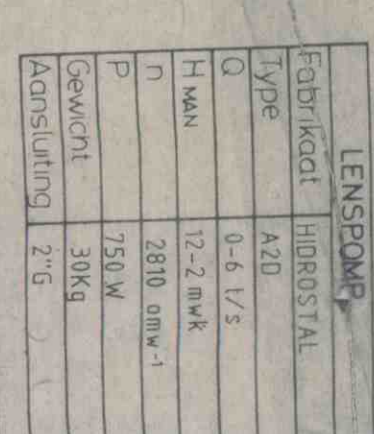 LENSPOMP
Fabrikaat HIDROSTAL
Type A2D
Q 0-6 l/s
H MAN 12-2 mwk
n 2810 omw-1
P 750 W
Gewicht 30Kg
Aansluiting 2"G